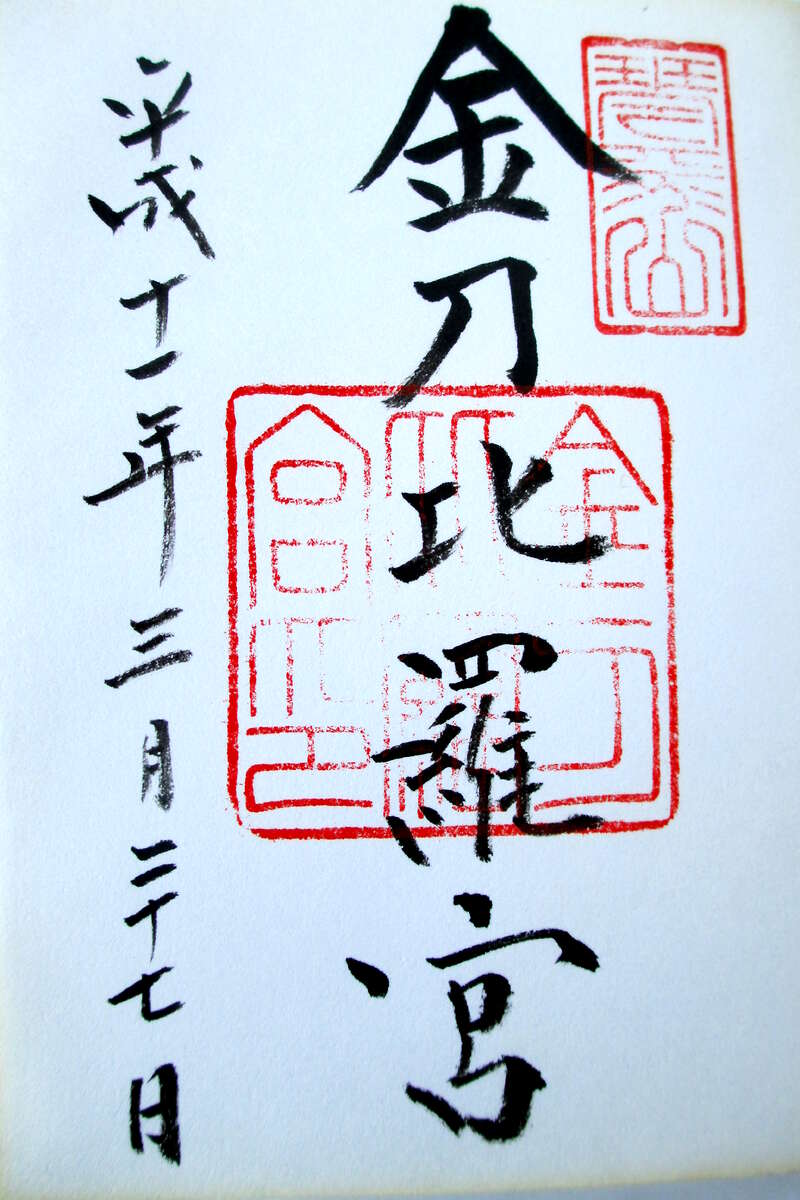 琴平山
金刀比羅宮
金刀
比羅
宮印
平成十一年三月二十七日